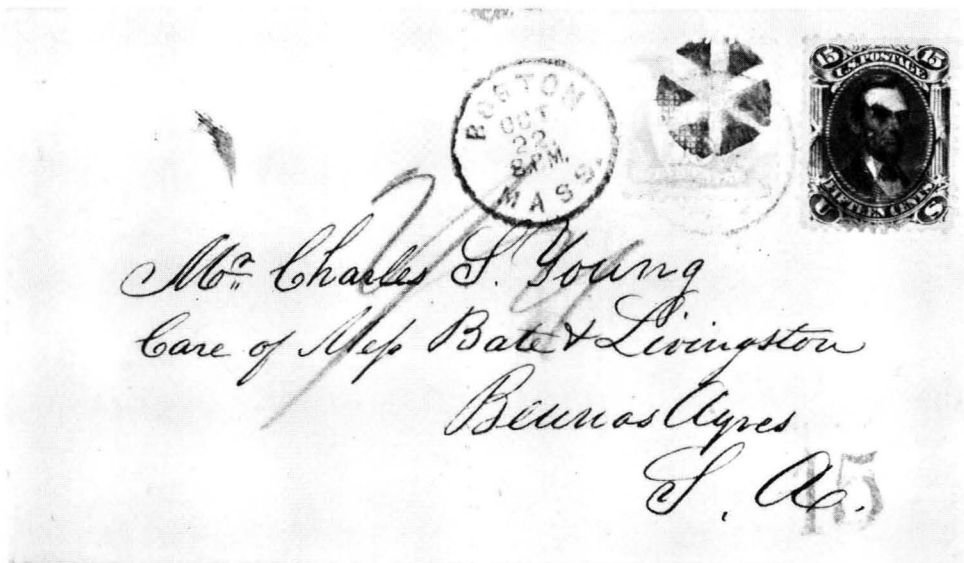 BOSTON
OCT
22
8 PM
MASS.
15 15
U.S. POSTAGE
FIFTEEN CENTS
U S
Mr. Charles S. Young
Care of Mess Bate & Livingston
Beunos Ayres
S. A.
15